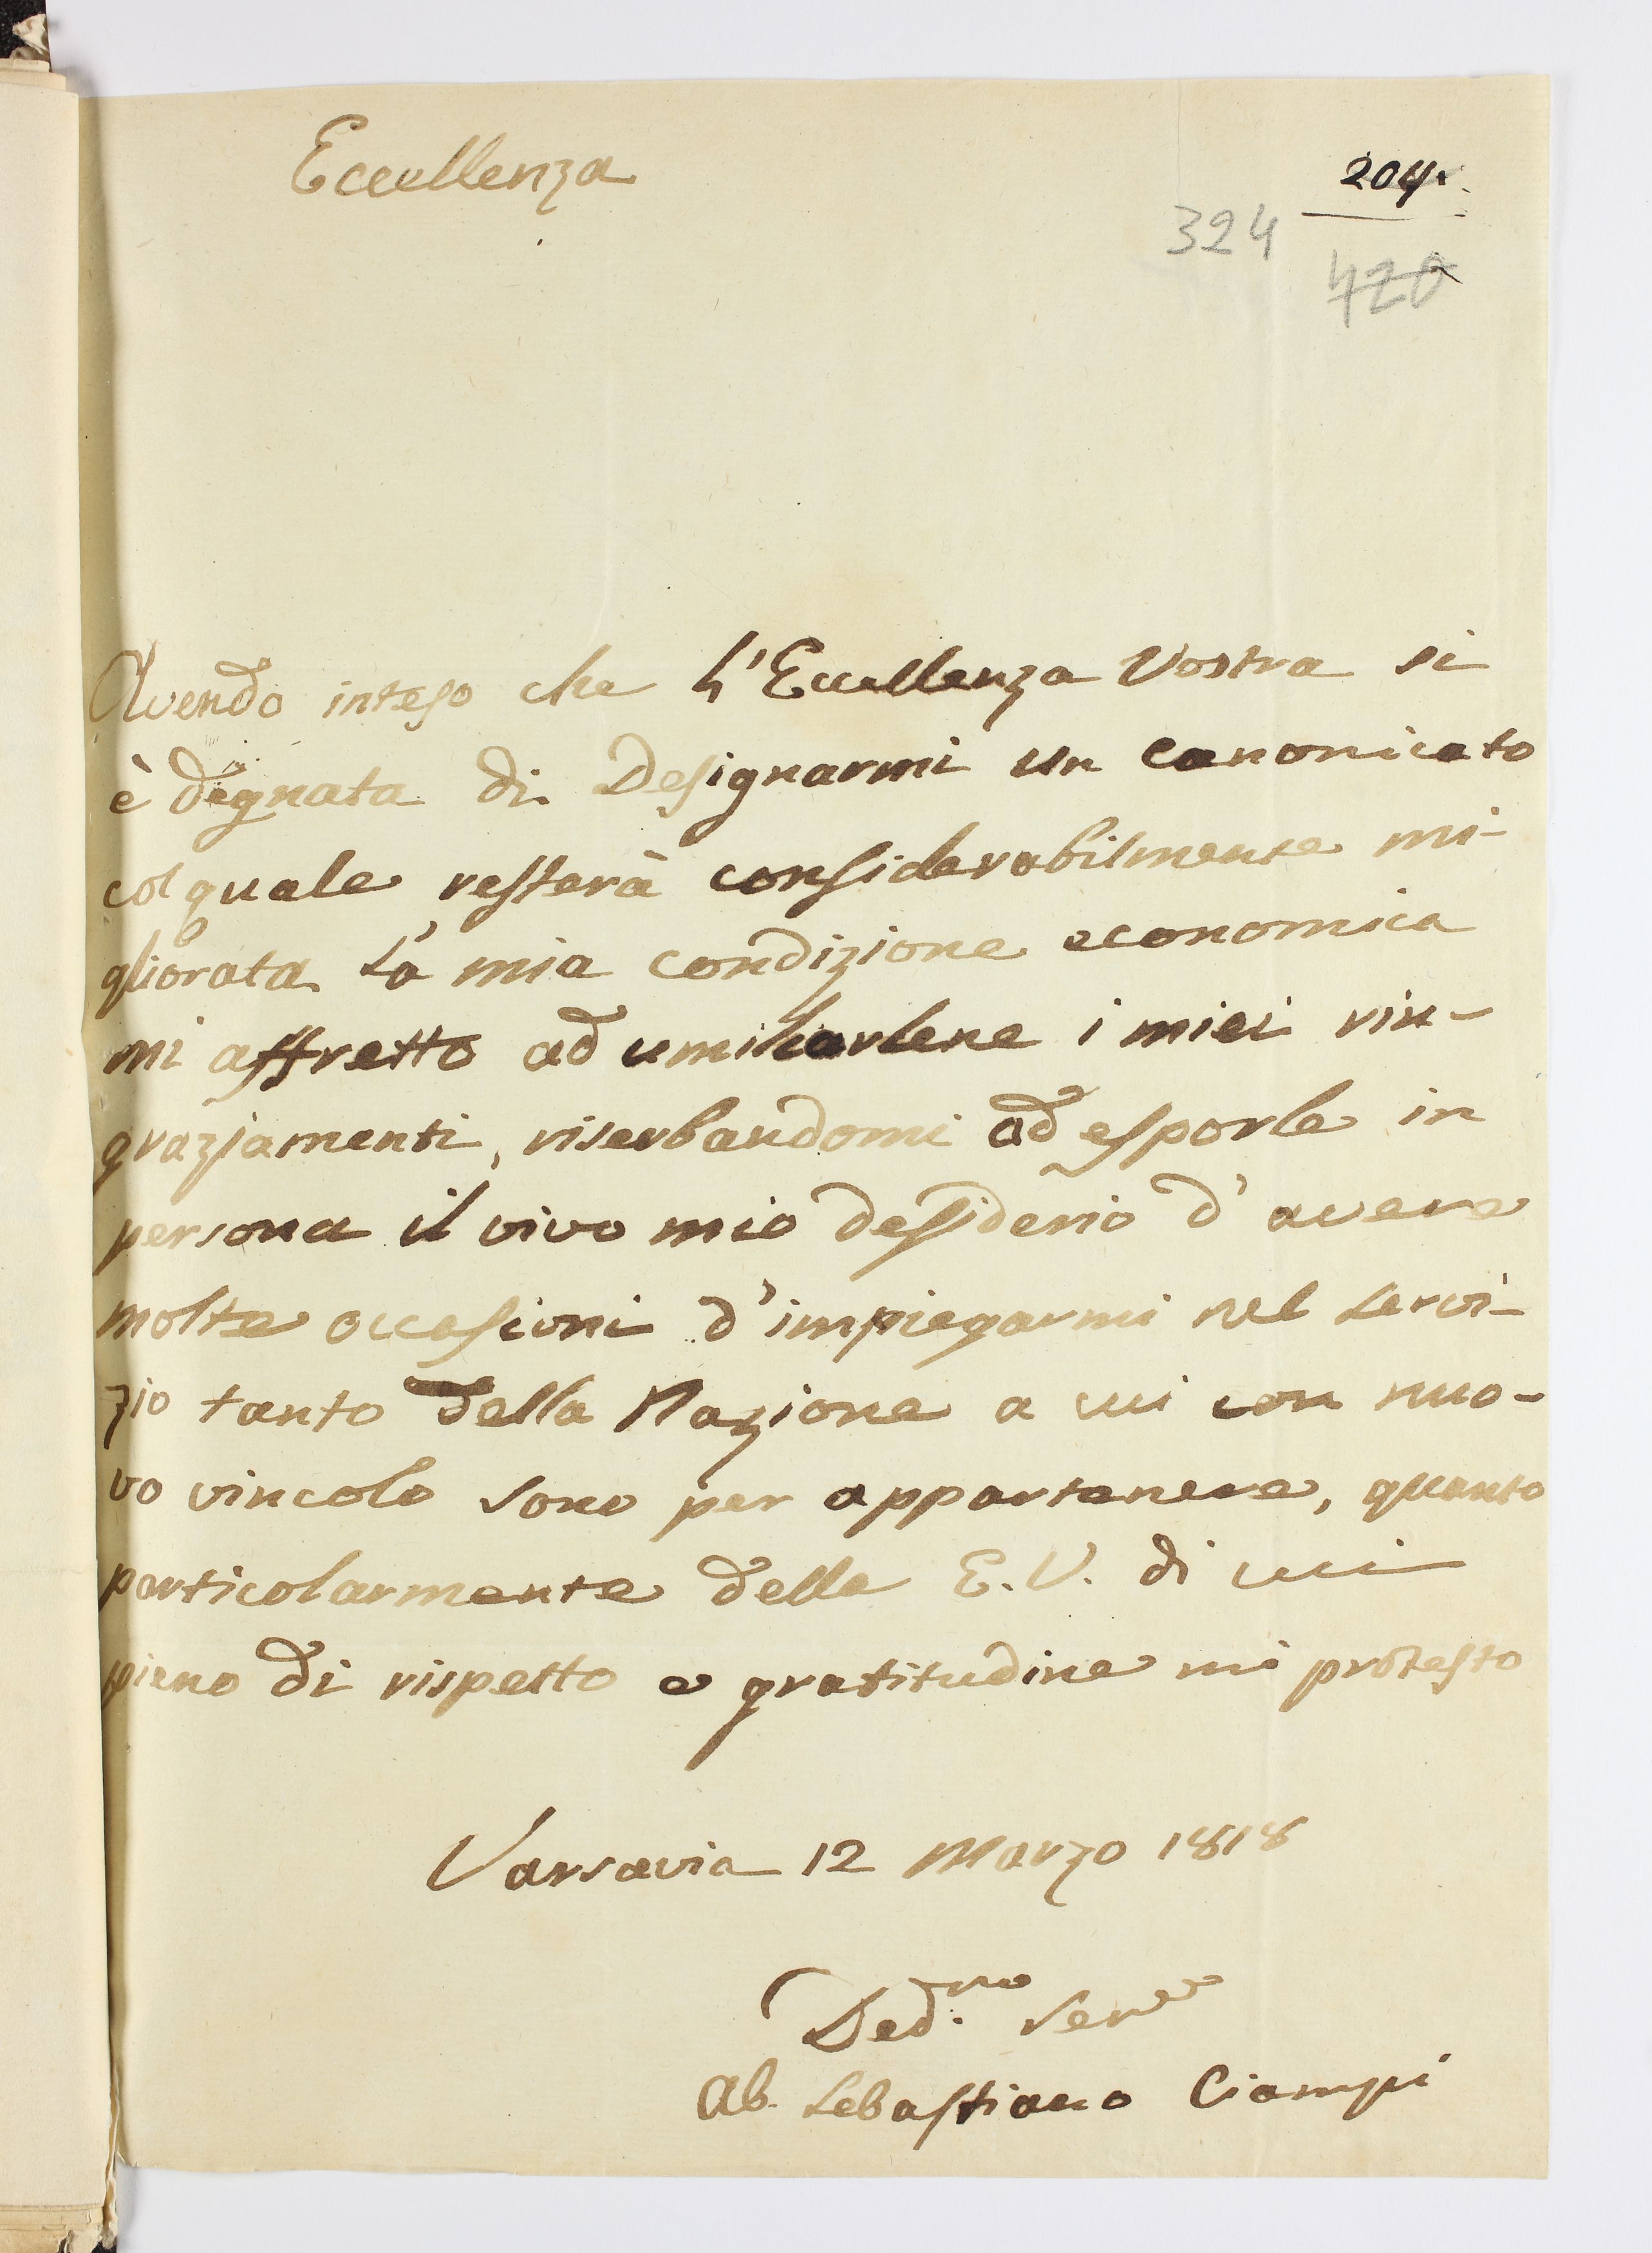 Eccellenza
204.
324
420
Avendo inteso che L'Eccellenza Vostra si
è degnata di Designarmi un canonicato
col quale resterà considerabilmente mi-
gliorata la mia condizione economica
mi affretto ad umiliarlene i miei rin-
graziamenti, riserbandomi ad esporle in
persona il vivo mio desiderio d'avere
molte occasioni d'impiegarmi nel servi-
zio tanto della Nazione a cui con nuo-
vo vincolo sono per appartenere, quanto
particolarmente della E. V. di cui
pieno di rispetto e gratitudine mi protesto
Varsavia 12 Marzo 1818
Ded.mo Serre
Ab. Sebastiano Ciampi